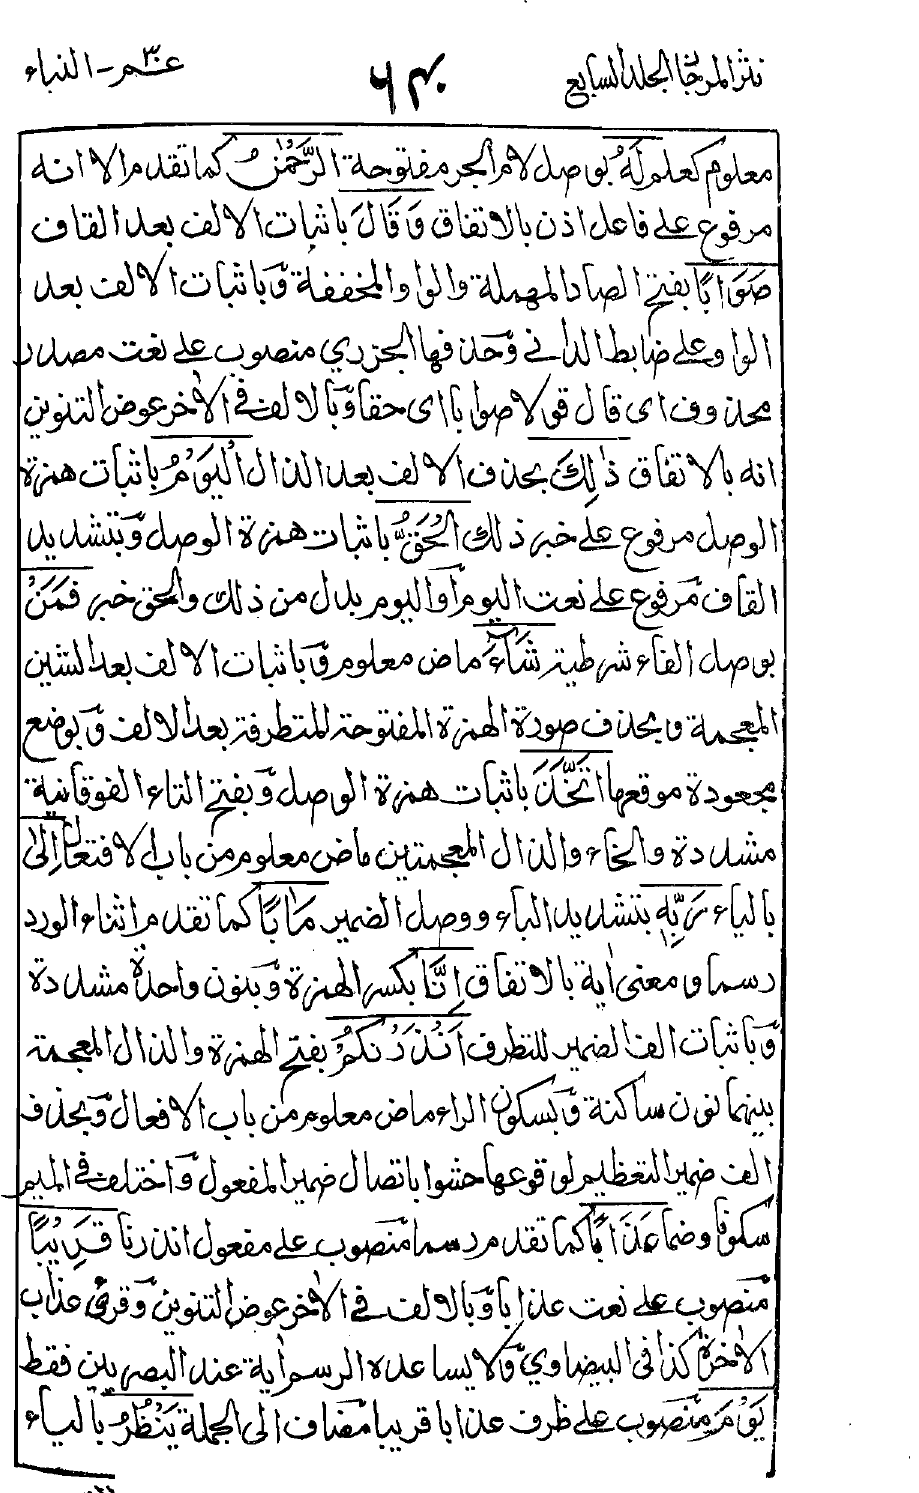 نثر المرجان الجلد السابع ٦٠٤ عم ٣٠ - النباء
معلوم كعلم لَهُ بوصل لام الجر مفتوحة الرَّحْمٰنُ كما تقدم الا انه
مرفوع على فاعل اذن بالاتفاق وَقَالَ باثبات الالف بعد القاف
صَوَابًا بفتح الصاد المهملة والواو المخففة وباثبات الالف بعد
الواو على ضابط الداني وحذفها الجزري منصوب على نعت مصدر
محذوف اى قال قولا صوابا اى حقا وبالالف فى الاٰخر عوض التنوين
انه بالاتفاق ذٰلِكَ بحذف الالف بعد الذال الْيَوْمُ باثبات همزة
الوصل مرفوع على خبر ذلك الْحَقُّ باثبات همزة الوصل وبتشديد
القاف مرفوع على نعت اليوم أو اليوم بدل من ذلك والحق خبر فَمَنْ
بوصل الفاء شرطية شَآءَ ماض معلوم وباثبات الالف بعد الشين
المعجمة وبحذف صورة الهمزة المفتوحة المتطرفة بعد الالف وبوضع
مجعودة موقعها اتَّخَذَ باثبات همزة الوصل وبفتح التاء الفوقانية
مشددة والخاء والذال المعجمتين ماض معلوم من باب الافتعال اِلٰى
بالياء رَبِّهٖ بتشديد الباء ووصل الضمير مَاٰبًا كما تقدم اثناء الورد
رسما ومعنى اٰية بالاتفاق اِنَّا بكسر الهمزة وبنون واحدة مشددة
وباثبات الف الضمير للتطرف اَنْذَرْنٰكُمْ بفتح الهمزة والذال المعجمة
بينهما نون ساكنة وبسكون الراء ماض معلوم من باب الافعال وبحذف
الف ضمير التعظيم لوقوعها حشوا باتصال ضمير المفعول واختلف فى الميم
سكونا وضما عَذَابًا كما تقدم رسما منصوب على مفعول انذرنا قَرِيْبًا
منصوب على نعت عذابا وبالالف فى الاٰخر عوض التنوين وقرئ عذاب
الاٰخرة كذا فى البيضاوي ولا يساعده الرسم اٰية عند البصريين فقط
يَوْمَ منصوب على ظرف عذابا قريبا مضاف الى الجملة يَنْظُرُ بالياء